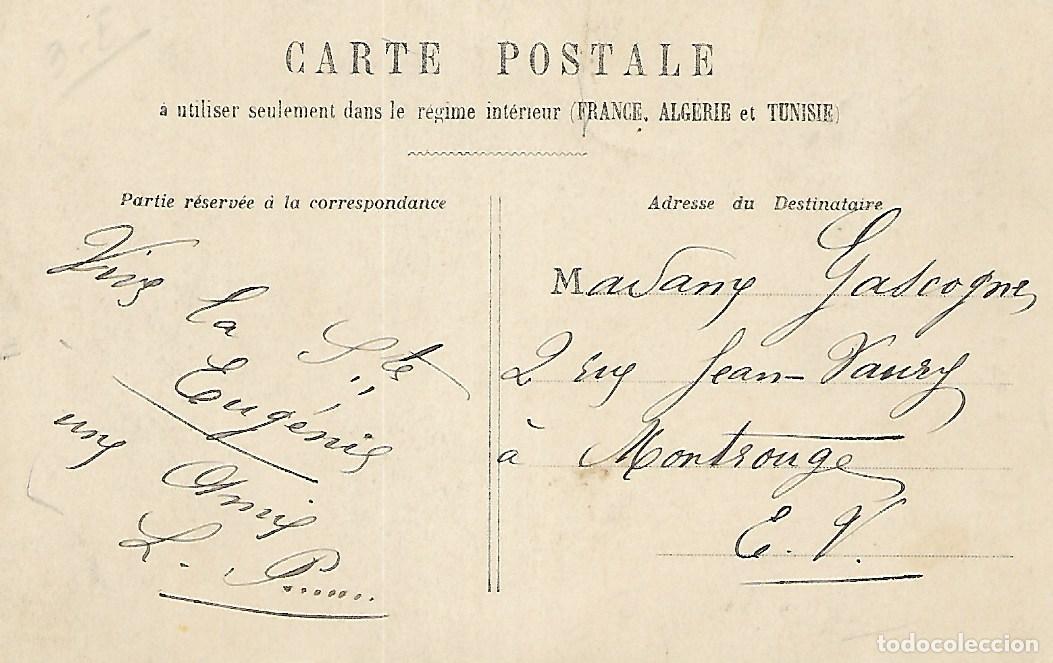 CARTE POSTALE
à utiliser seulement dans le régime intérieur (FRANCE, ALGERIE et TUNISIE)
Partie réservée à la correspondance
Vive
la Ste
Eugénie
une Amie
L. P......
Adresse du Destinataire
Madame Gascogne
2 rue Jean-
à Montrouge
E. V.
todocoleccion